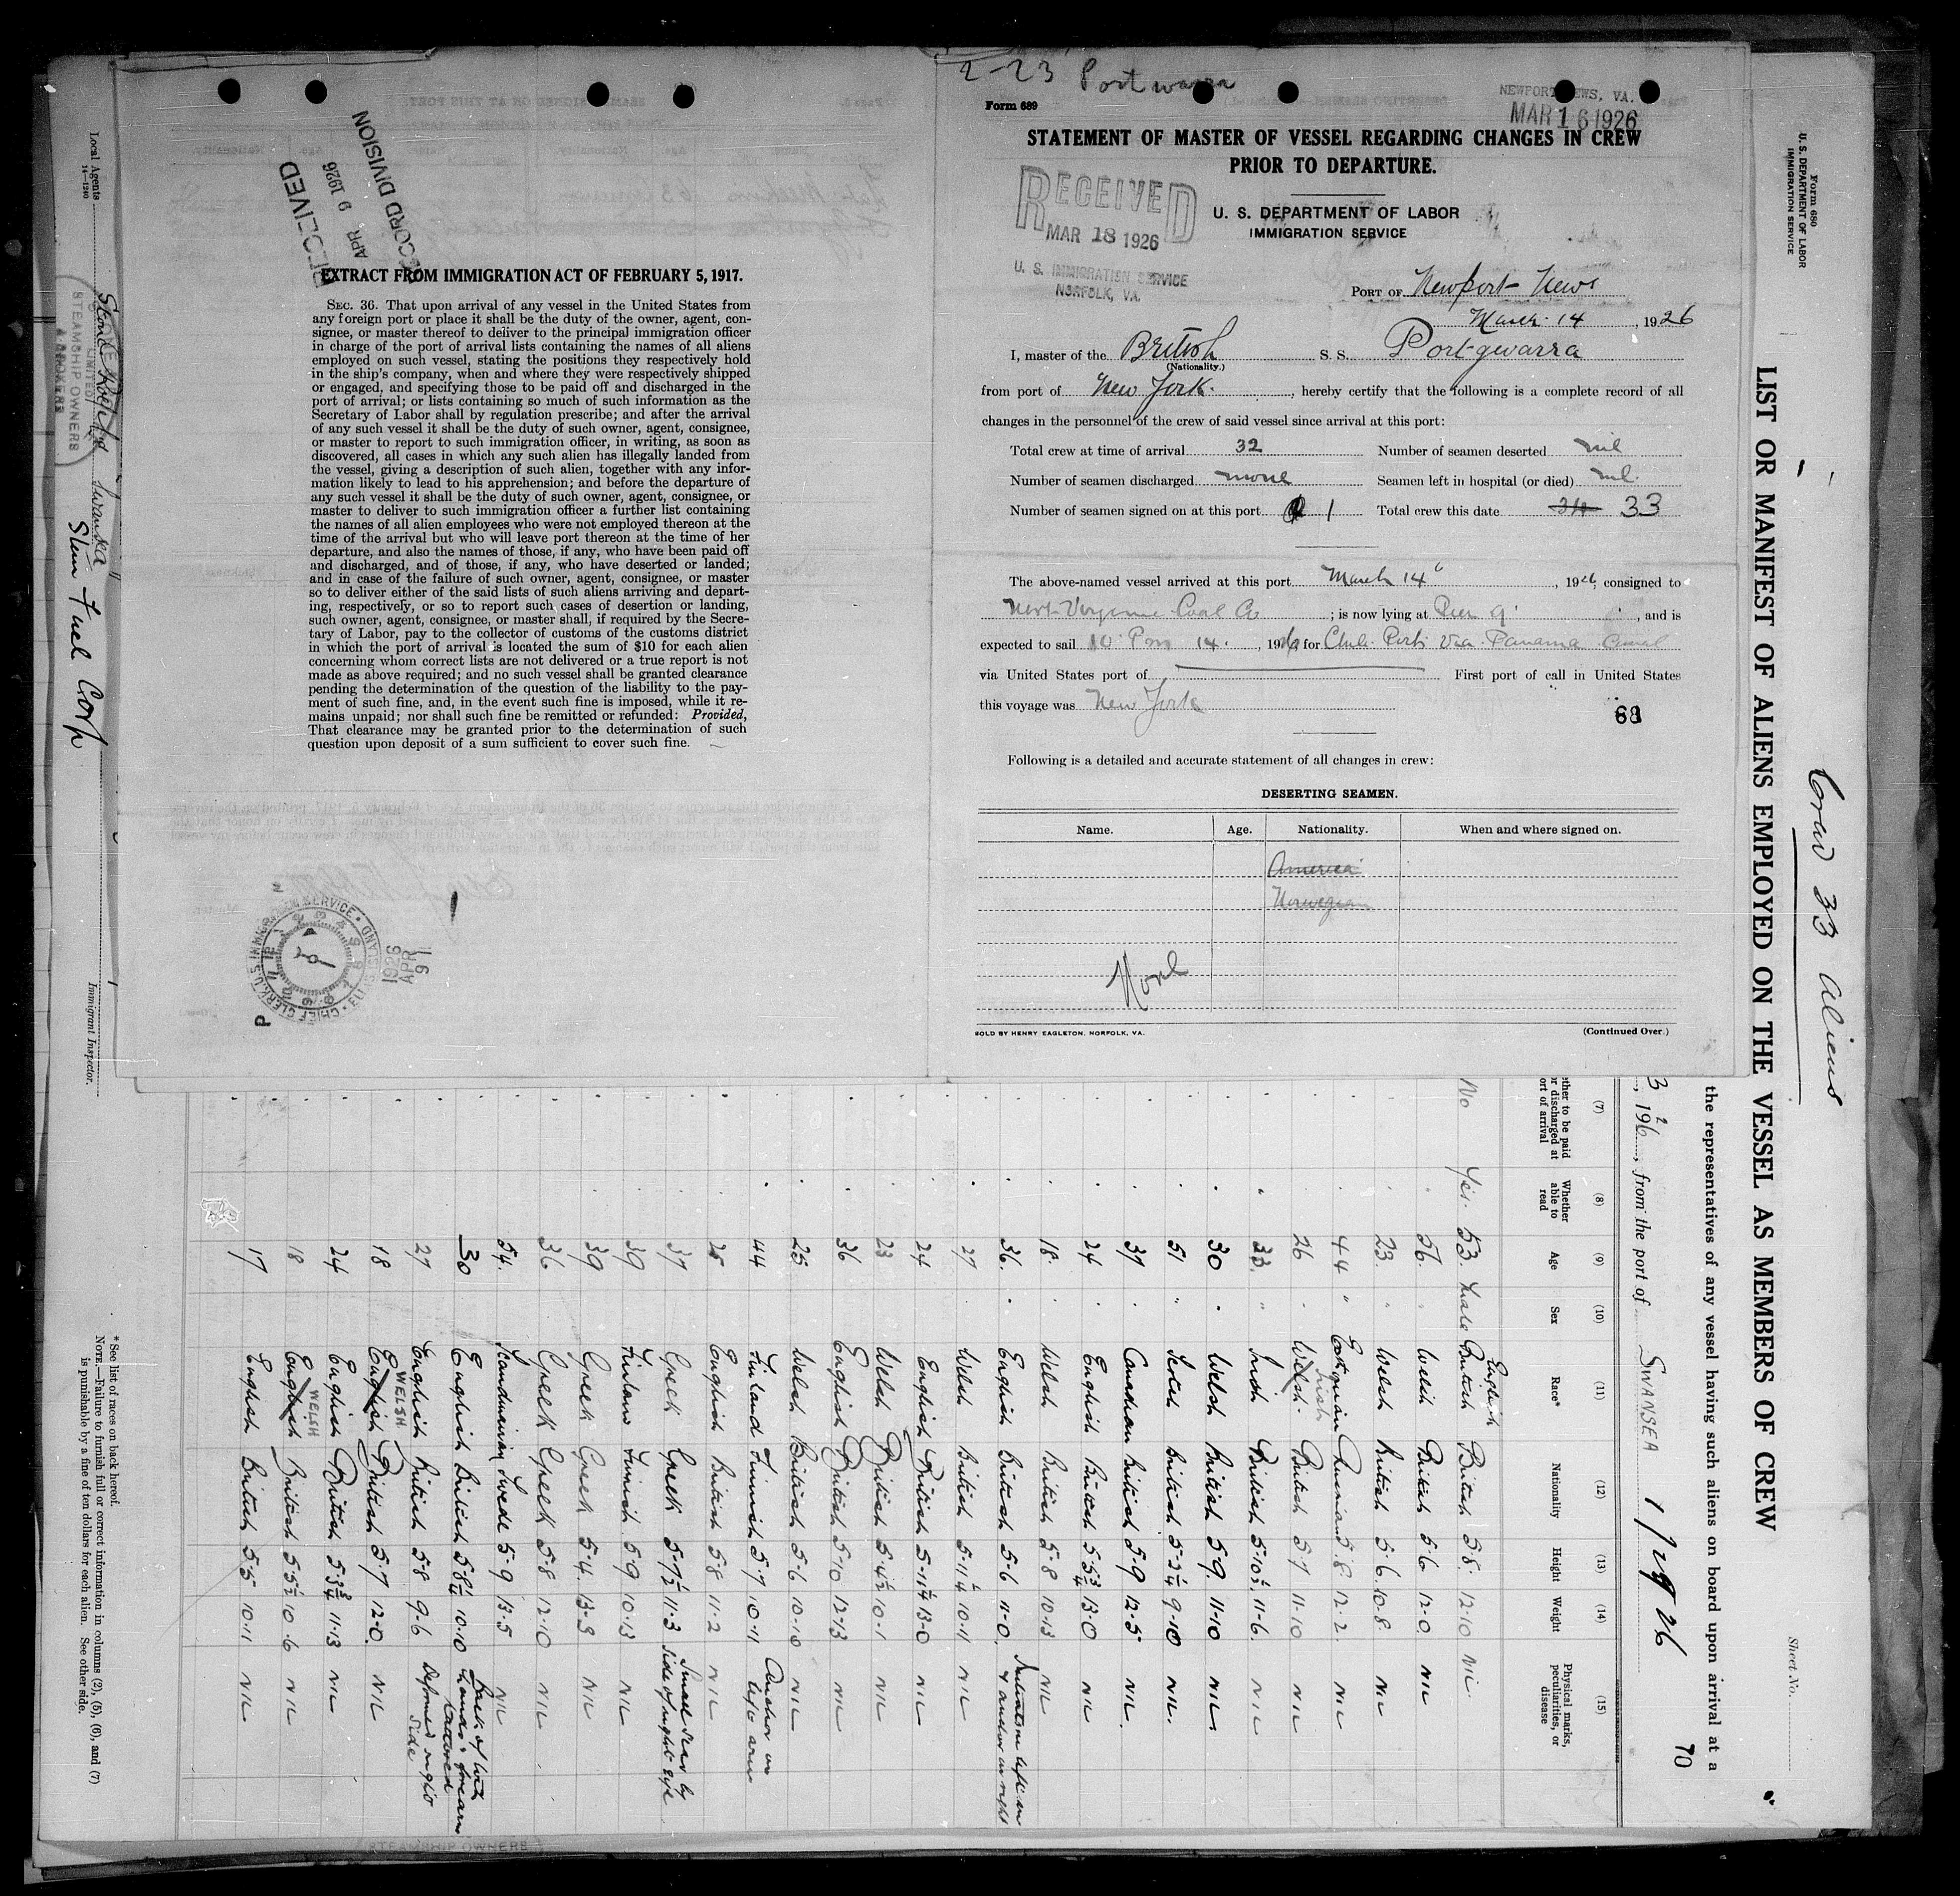 2-23 Portwarra
Form 689
NEWPORT NEWS, VA.
MAR 16 1926
STATEMENT OF MASTER OF VESSEL REGARDING CHANGES IN CREW
PRIOR TO DEPARTURE.
RECEIVED
MAR 18 1926
U. S. IMMIGRATION SERVICE
NORFOLK, VA.
U. S. DEPARTMENT OF LABOR
IMMIGRATION SERVICE
PORT OF Newport News
March 14, 1926
I, master of the British S. S. Portgwarra
(Nationality.)
from port of New York, hereby certify that the following is a complete record of all
changes in the personnel of the crew of said vessel since arrival at this port:
Total crew at time of arrival 32 Number of seamen deserted nil
Number of seamen discharged none Seamen left in hospital (or died) nil
Number of seamen signed on at this port 1 Total crew this date 34 33
The above-named vessel arrived at this port March 14, 1926, consigned to
West Virginia Coal Co; is now lying at Pier 9, and is
expected to sail 10 Pm 14, 1926 for Chile Ports Via Panama Canal
via United States port of First port of call in United States
this voyage was New York
68
Following is a detailed and accurate statement of all changes in crew:
DESERTING SEAMEN.
Name. Age. Nationality. When and where signed on.
America
Norwegian
None
SOLD BY HENRY EAGLETON, NORFOLK, VA. (Continued Over.)
RECEIVED
APR 9 1926
RECORD DIVISION
EXTRACT FROM IMMIGRATION ACT OF FEBRUARY 5, 1917.
SEC. 36. That upon arrival of any vessel in the United States from
any foreign port or place it shall be the duty of the owner, agent, con-
signee, or master thereof to deliver to the principal immigration officer
in charge of the port of arrival lists containing the names of all aliens
employed on such vessel, stating the positions they respectively hold
in the ship's company, when and where they were respectively shipped
or engaged, and specifying those to be paid off and discharged in the
port of arrival; or lists containing so much of such information as the
Secretary of Labor shall by regulation prescribe; and after the arrival
of any such vessel it shall be the duty of such owner, agent, consignee,
or master to report to such immigration officer, in writing, as soon as
discovered, all cases in which any such alien has illegally landed from
the vessel, giving a description of such alien, together with any infor-
mation likely to lead to his apprehension; and before the departure of
any such vessel it shall be the duty of such owner, agent, consignee, or
master to deliver to such immigration officer a further list containing
the names of all alien employees who were not employed thereon at the
time of the arrival but who will leave port thereon at the time of her
departure, and also the names of those, if any, who have been paid off
and discharged, and of those, if any, who have deserted or landed;
and in case of the failure of such owner, agent, consignee, or master
so to deliver either of the said lists of such aliens arriving and depart-
ing, respectively, or so to report such cases of desertion or landing,
such owner, agent, consignee, or master shall, if required by the Secre-
tary of Labor, pay to the collector of customs of the customs district
in which the port of arrival is located the sum of $10 for each alien
concerning whom correct lists are not delivered or a true report is not
made as above required; and no such vessel shall be granted clearance
pending the determination of the question of the liability to the pay-
ment of such fine, and, in the event such fine is imposed, while it re-
mains unpaid; nor shall such fine be remitted or refunded: Provided,
That clearance may be granted prior to the determination of such
question upon deposit of a sum sufficient to cover such fine.
CHIEF CLERK, U.S. IMMIGRATION SERVICE · ELLIS ISLAND
1926
APR
9
P
Form 680
U. S. DEPARTMENT OF LABOR
IMMIGRATION SERVICE
Sheet No.
Crew 33 aliens
LIST OR MANIFEST OF ALIENS EMPLOYED ON THE VESSEL AS MEMBERS OF CREW
the representatives of any vessel having such aliens on board upon arrival at a
70
, 1926, from the port of SWANSEA 1/29 26
(7) (8) (9) (10) (11) (12) (13) (14) (15)
Whether able to read Age Sex Race* Nationality Height Weight Physical marks, peculiarities, or disease
No Yes. 53. Male English British British 5.8. 12.10 NIL
56. Welsh British 5.6 12.0 NIL
23. Welsh British 5.6. 10.8 NIL
44 Russian 5.8. 12.2. NIL
26 Welsh Irish British 5.7 11.10 NIL
33. Irish British 5.10½ 11.6. NIL
30 Welsh British 5.9. 11.10 NIL
51 Scotch British 5.3¼ 9.10 NIL.
37 Canadian British 5.9 12.5 NIL.
24 English British 5.5¾ 13.0 NIL
18. Welsh British 5.8 10.13 NIL
36. English British 5.6 11.0
27 Welsh British 5.11¼ 10.11 NIL
24 English British 5.11¼ 13.0 NIL
23 Welsh British 5.4½ 10.1 NIL
36 English British 5.10 12.13 NIL
25 Welsh British 5.6 10.10 NIL
44 Finland Finnish 5.7 10.11 Anchor on left arm
25 English British 5.8 11.2 NIL
37 Greek Greek 5.7½ 11.3 Small scar by side of right eye
39 Finland Finnish 5.9 10.13 NIL
39 Greek Greek 5.4. 13.3 NIL
36 Greek Greek 5.8 12.10 NIL
54. Scandinavian Swede 5.9 13.5 NIL
30 English British 5.8¼ 10.10 Back of both hands & forearms tattooed
27 English British 5.8 9.6
18 English WELSH British 5.7 12.0. NIL
24 English British 5.8¾ 11.13 NIL
18 English WELSH British 5.5½ 10.6 NIL
17 English British 5.5 10.11 NIL
*See list of races on back hereof.
NOTE.—Failure to furnish full or correct information in columns (2), (5), (6), and (7)
is punishable by a fine of ten dollars for each alien. See other side.
Immigrant Inspector.
Local Agents Stein Fuel Corp
14—1240
Swansea
LIMITED
STEAMSHIP OWNERS
& BROKERS
STEAMSHIP OWNERS